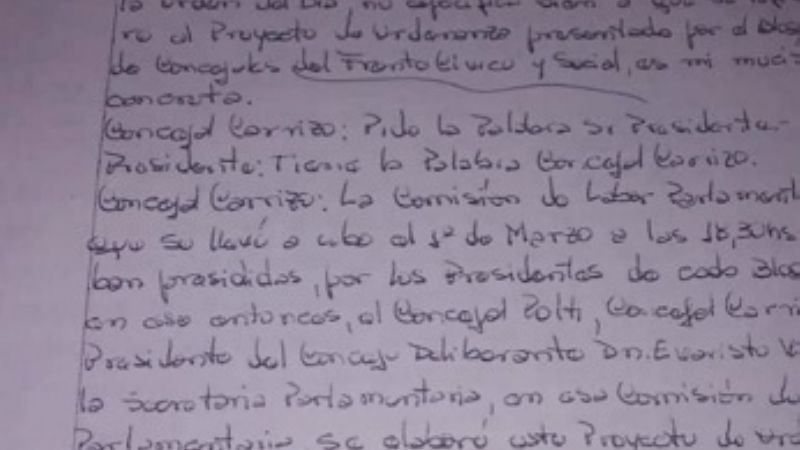 la orden del Dia, no especifica bien a que se
re al Proyecto de Ordenanza presentado por el
de Concejales del Frente Civico y Social, es mi
concreta.
Concejal Carrizo: Pido la Palabra Sr Presidente.-
Presidente: Tiene la Palabra Concejal Carrizo.
Concejal Carrizo: La Comisión de Labor Parlament
que se llevó a cabo el 1º de Marzo a las 18,30hs
ban presididas, por los Presidentes de cada Bloq
en ese entonces, el Concejal Polti, Concejal Carri
Presidente del Concejo Deliberante Dn. Evaristo
la Secretaria Parlamentaria, en esa Comisión de
Parlamentaria se elaboró este Proyecto de Ord